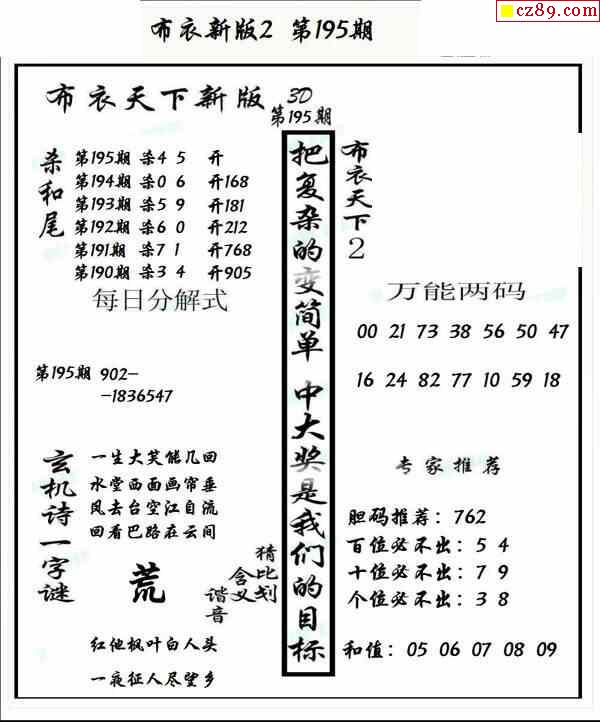 cz89.com
布衣新版2 第195期
布衣天下新版 3D
第195期
杀和尾
第195期 杀4 5 开
第194期 杀0 6 开168
第193期 杀5 9 开181
第192期 杀6 0 开212
第191期 杀7 1 开768
第190期 杀3 4 开905
每日分解式
第195期 902-
-1836547
玄机诗一字谜
一生大笑能几回
水堂西面画帘垂
风去台空江自流
回看巴路在云间
荒
猜比划
含义
谐音
红他枫叶白人头
一夜征人尽望乡
把复杂的变简单 中大奖是我们的目标
布衣天下2
万能两码
00 21 73 38 56 50 47
16 24 82 77 10 59 18
专家推荐
胆码推荐：762
百位必不出：5 4
十位必不出：7 9
个位必不出：3 8
和值：05 06 07 08 09